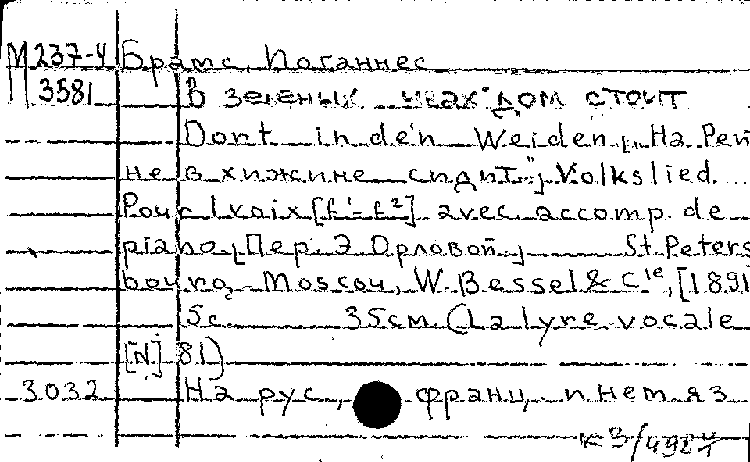 М 237-4 Брамс, Иоганнес
П 3581 В зеленых ивах дом стоит
Dort in den Weiden [„На Рей
не в хижине сидит"] Volkslied.
Pour 1 voix [f¹-f²] avec accomp. de
piano [Пер. Э Орловой] St Peters
bourg, Moscou, W. Bessel & Cie, [1891
5с. 35см. (La lyre vocale
[N] 81)
3032 На рус, франц, и нем яз
к3/4984